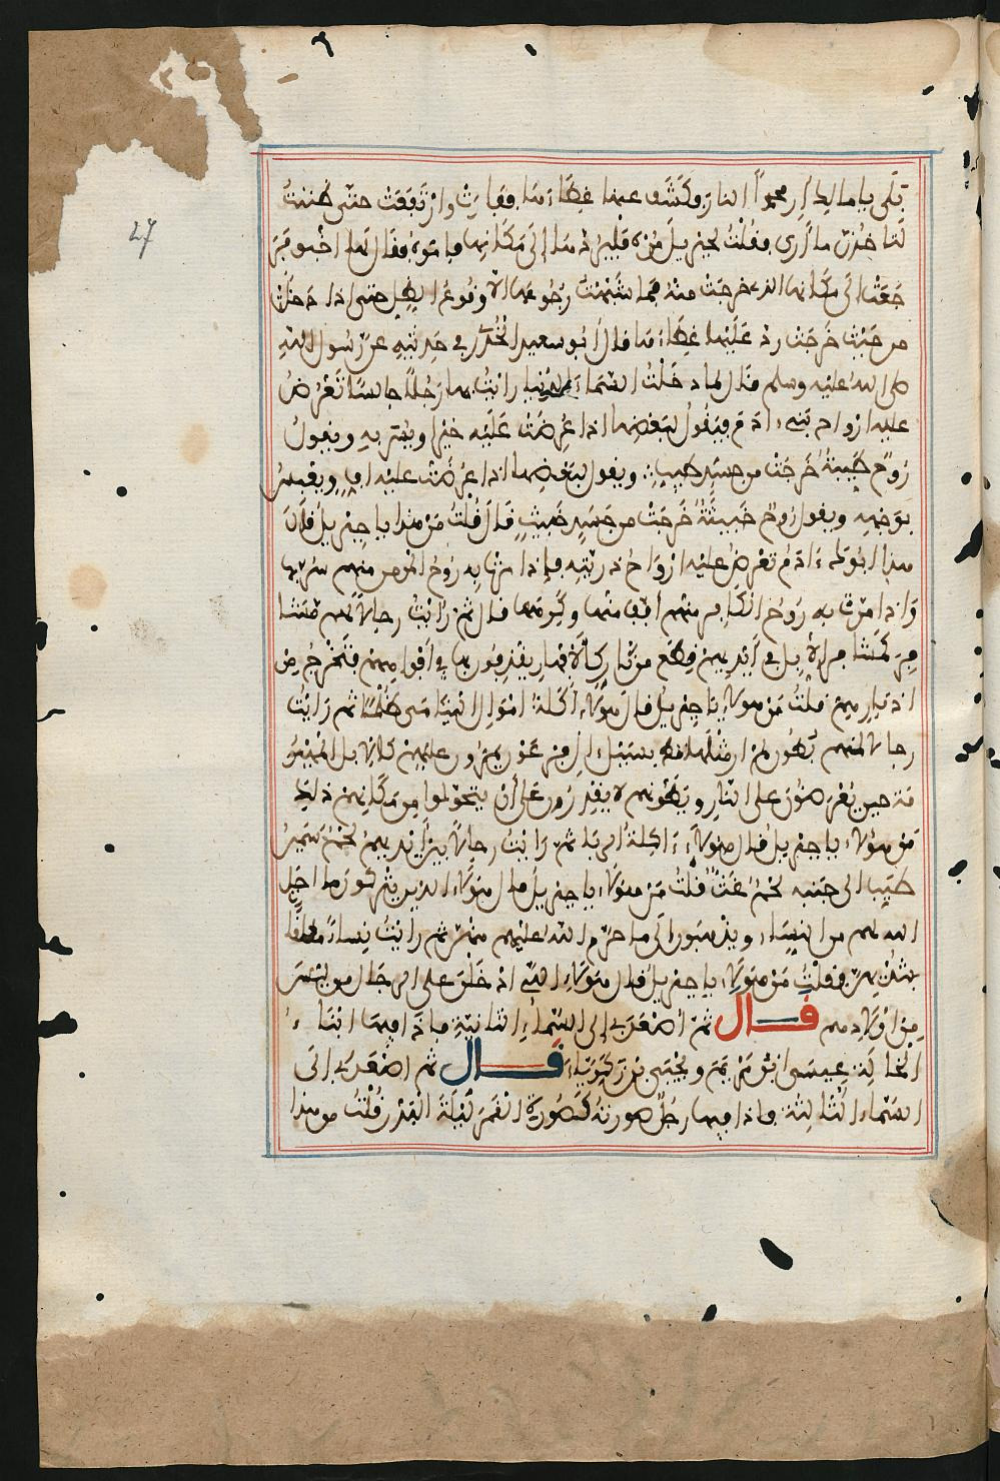 27
بلى يا مالك ار محمدا النار فكشف عنها غطاءها ففارت وارتفعت حتى ظننت
لتاخذن ما أرى فقلت لجبريل مره فليردها إلى مكانها فامره فقال لها اخبو فر
جعت الى مكانها الذي خرجت منه فما شبهت رجوعها الا وقوع الظل حتى اذا دخلت
من حيث خرجت رد عليها غطاءها قال ابو سعيد الخدري في حديثه عن رسول الله
صلى الله عليه وسلم قال لما دخلت السماء الدنيا رايت بها رجلا جالسا تعرض
عليه ارواح بني ادم فيقول لبعضها اذا عرضت عليه خيرا ويسر به ويقول
روح طيبة خرجت من جسد طيب ويقول لبعضها اذا عرضت عليه اف ويعبس
بوجهه ويقول روح خبيثة خرجت من جسد خبيث قال قلت من هذا يا جبريل قال
هذا ابوك ءادم تعرض عليه ارواح ذريته فاذا مرت به روح المومن منهم سر بها
واذا مرت به روح الكافر منهم افف منها وكرهها قال ثم رايت رجالا لهم مشافر
كمشافر الابل في أيديهم قطع من نار كالافهار يقذفونها في أفواههم فتخرج من
ادبارهم قلت من هولاء يا جبريل قال هولاء أكلة اموال اليتامى ظلما ثم رايت
رجالا لهم بطون لم ار مثلها قط بسبيل ال فرعون يمرون عليهم كالابل المهيو
مة حين يعرضون على النار ويطئونهم لا يقدرون على أن يتحولوا من مكانهم ذلك
من هولاء يا جبريل قال هولاء ءاكلة الربا ثم رايت رجالا بين أيديهم لحم سمين
طيب الى جنبه لحم غث قلت من هولاء يا جبريل قال هولاء الذين يتركون ما احل
الله لهم من النساء ويذهبون الى ما حرم الله عليهم منهن ثم رايت نساء معلقات
بثديهن فقلت من هولاء يا جبريل قال هولاء التي ادخلن على الرجال من ليس
من اولادهم قال ثم أصعد بي إلى السماء الثانية فاذا فيها ابنا
الخالة عيسى ابن مريم ويحيى بن زكرياء قال ثم اصعد بي إلى
السماء الثالثة فاذا فيها رجل صورته كصورة القمر ليلة البدر قلت من هذا